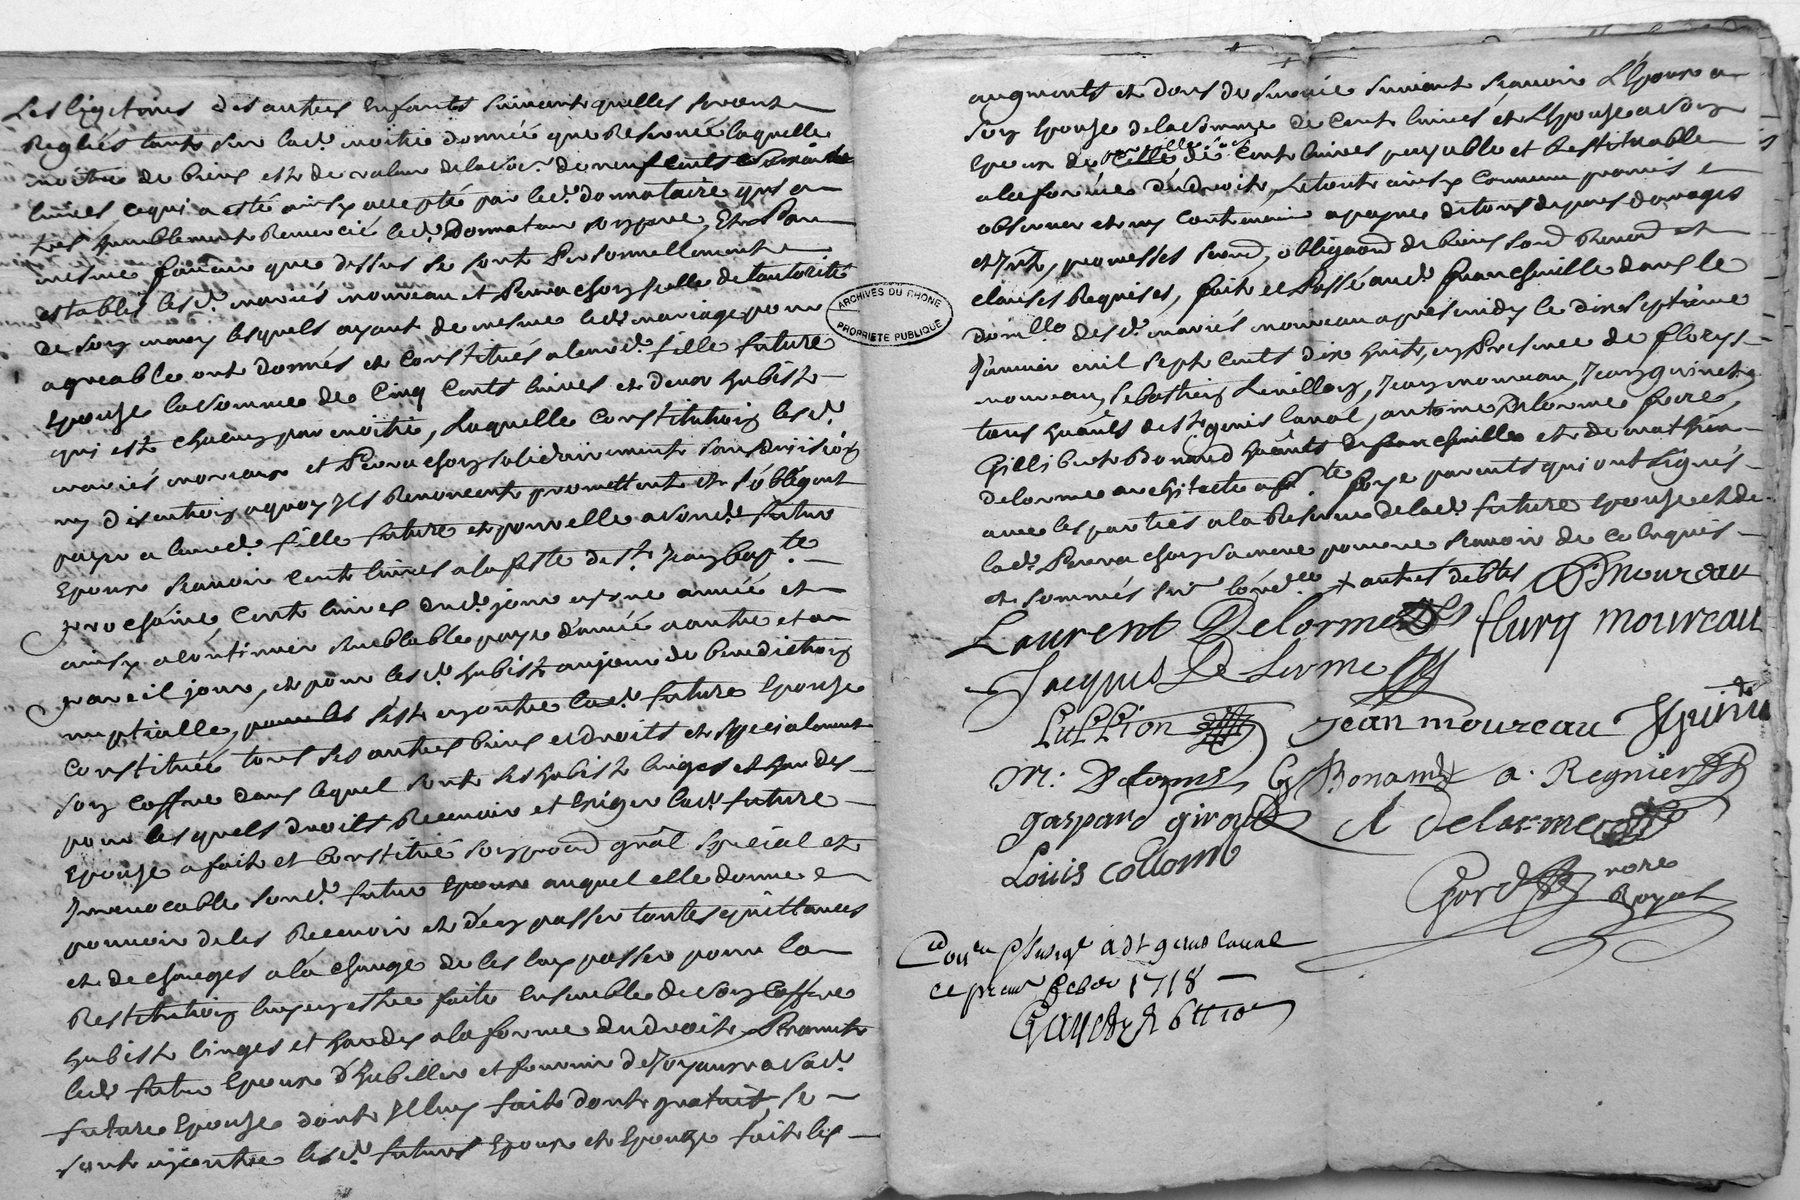 Les ligetimes des autres enfants suivant quelles seront
Reglés tant sur lad. moitie donnée que Reservée laquelle
moitie de biens est de valeur de la so. de neuf cents
livres ce qui a esté ainsy accepté par led. donnataire qui a
tres humblement Remercié led. Donnateur son pere, Et Par
mesme faveur que dessus se sont Personnellement
establis lesd. mariés moureau et Perrachon icelle de lautorité
de son mary lesquels ayant de mesme led. mariage pour
agreable ont donnés et constitués a leurd. fille future
epouse la somme de Cinq Cents livres et deux habists
qui est chacun par moitié, Laquelle constitution lesd.
mariés moureau et Perrachon solidairement sans division
ny discution a quoy ils Renoncent promettent et s'obligent
payer a leurd. fille future et pour elle a sond. futur
Epoux scavoir cent livres a la feste de st. Jean bapte.
prochaine cent livres dud. jour en une année et
ainsy a continuer semblable paye d'année a autre et a
pareil jour, et pour lesd. habists au jour de benediction
nuptialle, s'est en outre lad. future Epouse
Constituée tous ses autres biens et droits et specialement
son coffre dans lequel sont ses habists linges et hardes
pour lesquels droits Recevoir et Exiger lad. future
Epouse a fait et Constitué son procu. gnal special et
Irrevocable sond. futur Epoux auquel elle donne
pouvoir de les Recevoir et d'en passer toutes quittances
et descharges a la charge de les luy passer pour la
Restitution luy en estre faite Ensemble de son Coffre
habists linges et hardes a la forme du droit, Permet
led. futur Epoux d'habiller et fournir de Joyaux a sad.
future Epouse dont Il luy fait don gratuit, se
sont en outre lesd. futurs Epoux et Epouse fait les
ARCHIVES DU RHONE
PROPRIETE PUBLIQUE
augments et dons de survie suivant scavoir L'Epoux a
son Epouse de la somme de Cent livres et L'Epouse a son
Epoux de celle de Cent livres payable et Restituable
a la forme du droit, Le tout ainsy comme promis
observer et ny contrevenir a peyne de tous depens domages
et Ints, promesses serment, obligaõns de biens
clauses Requises, fait et Passé aud. francheville dans le
domlle desd. mariés moureau apres midy le dix septieme
Janvier mil sept cents dix huit, en Presence de fleury
moureau, Sebastien, Jean moureau, Jean guinet,
tous hants de st genis laval, antoine Delorme frere,
Gillibert Bonard hants de francheville et de mathieu
delorme architecte parents qui ont signés
avec les parties a la Reserve de lad. future Epouse et de
lad. Perrachon sa mere pour ne scavoir de ce Enquis
et sommés sur lord.ce + autres debtes P moureau
Laurent Delorme fleury moureau
Jacques De Lorme
Jean moureau J Guinet
M: Delorme G Bonard a. Regnier
gaspard girau A delorme
Louis collomb
nore
Royal
a St genis laval
ce premr febvr 1718